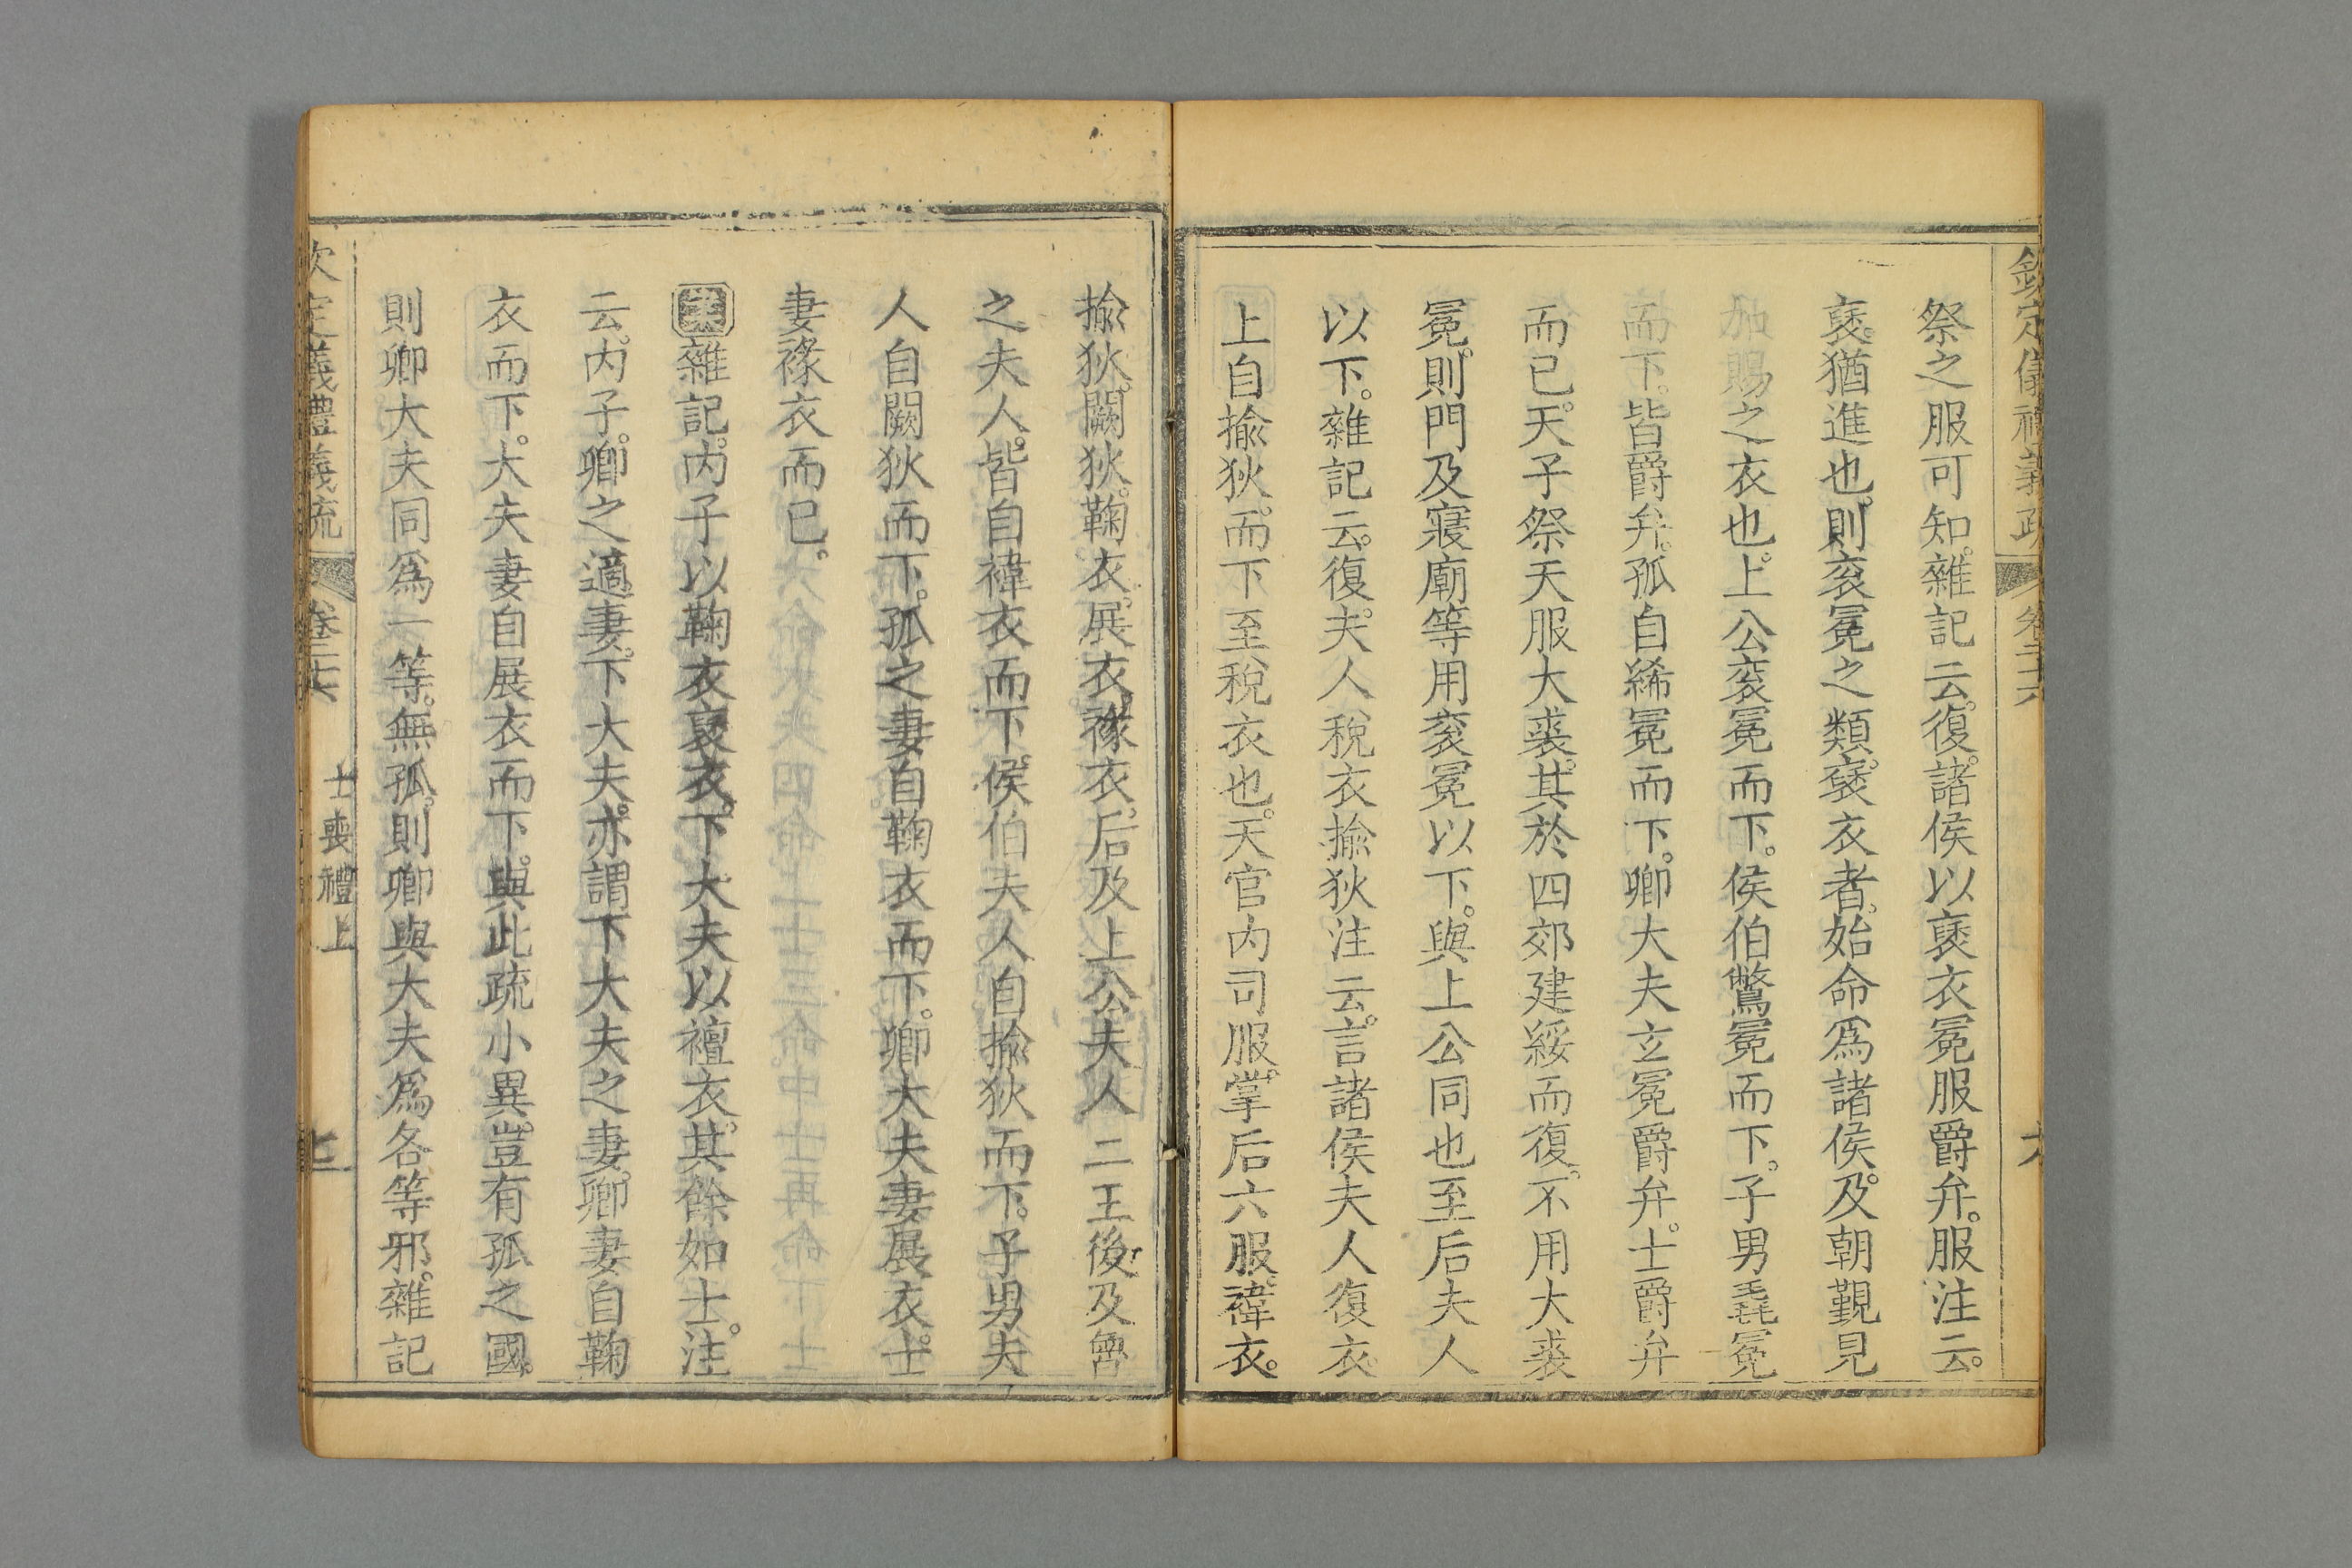 欽定儀禮義疏 卷二十六
祭之服可知。雜記云。復。諸侯以褒衣冕服爵弁。服注云。
褒。猶進也。則衮冕之類。褒衣者。始命爲諸侯。及朝覲見
加賜之衣也。上公衮冕而下。侯伯鷩冕而下。子男毳冕
而下。皆爵弁。孤自絺冕而下。卿大夫玄冕爵弁。士爵弁
而已。天子祭天服大裘。其於四郊建綏而復。不用大裘
冕。則門及寢廟等用衮冕以下。與上公同也至后夫人
以下。雜記云。復。夫人稅衣揄狄注云。言諸侯夫人復衣。
上自揄狄。而下至稅衣也。天官内司服。掌后六服。褘衣。
揄狄。闕狄。鞠衣。展衣。褖衣。后及上公夫人二王後及魯
之夫人。皆自褘衣而下。侯伯夫人自揄狄而下。子男夫
人自闕狄而下。孤之妻自鞠衣而下。卿大夫妻展衣。士
妻褖衣而已。
案雜記。内子以鞠衣褒衣。下大夫以襢衣。其餘如士。注
云。内子。卿之適妻。下大夫。亦謂下大夫之妻。卿妻自鞠
衣而下。大夫妻自展衣而下。與此疏小異。豈有孤之國。
則卿大夫同爲一等。無孤。則卿與大夫爲各等邪。雜記
欽定儀禮義疏 卷二十六 士喪禮上